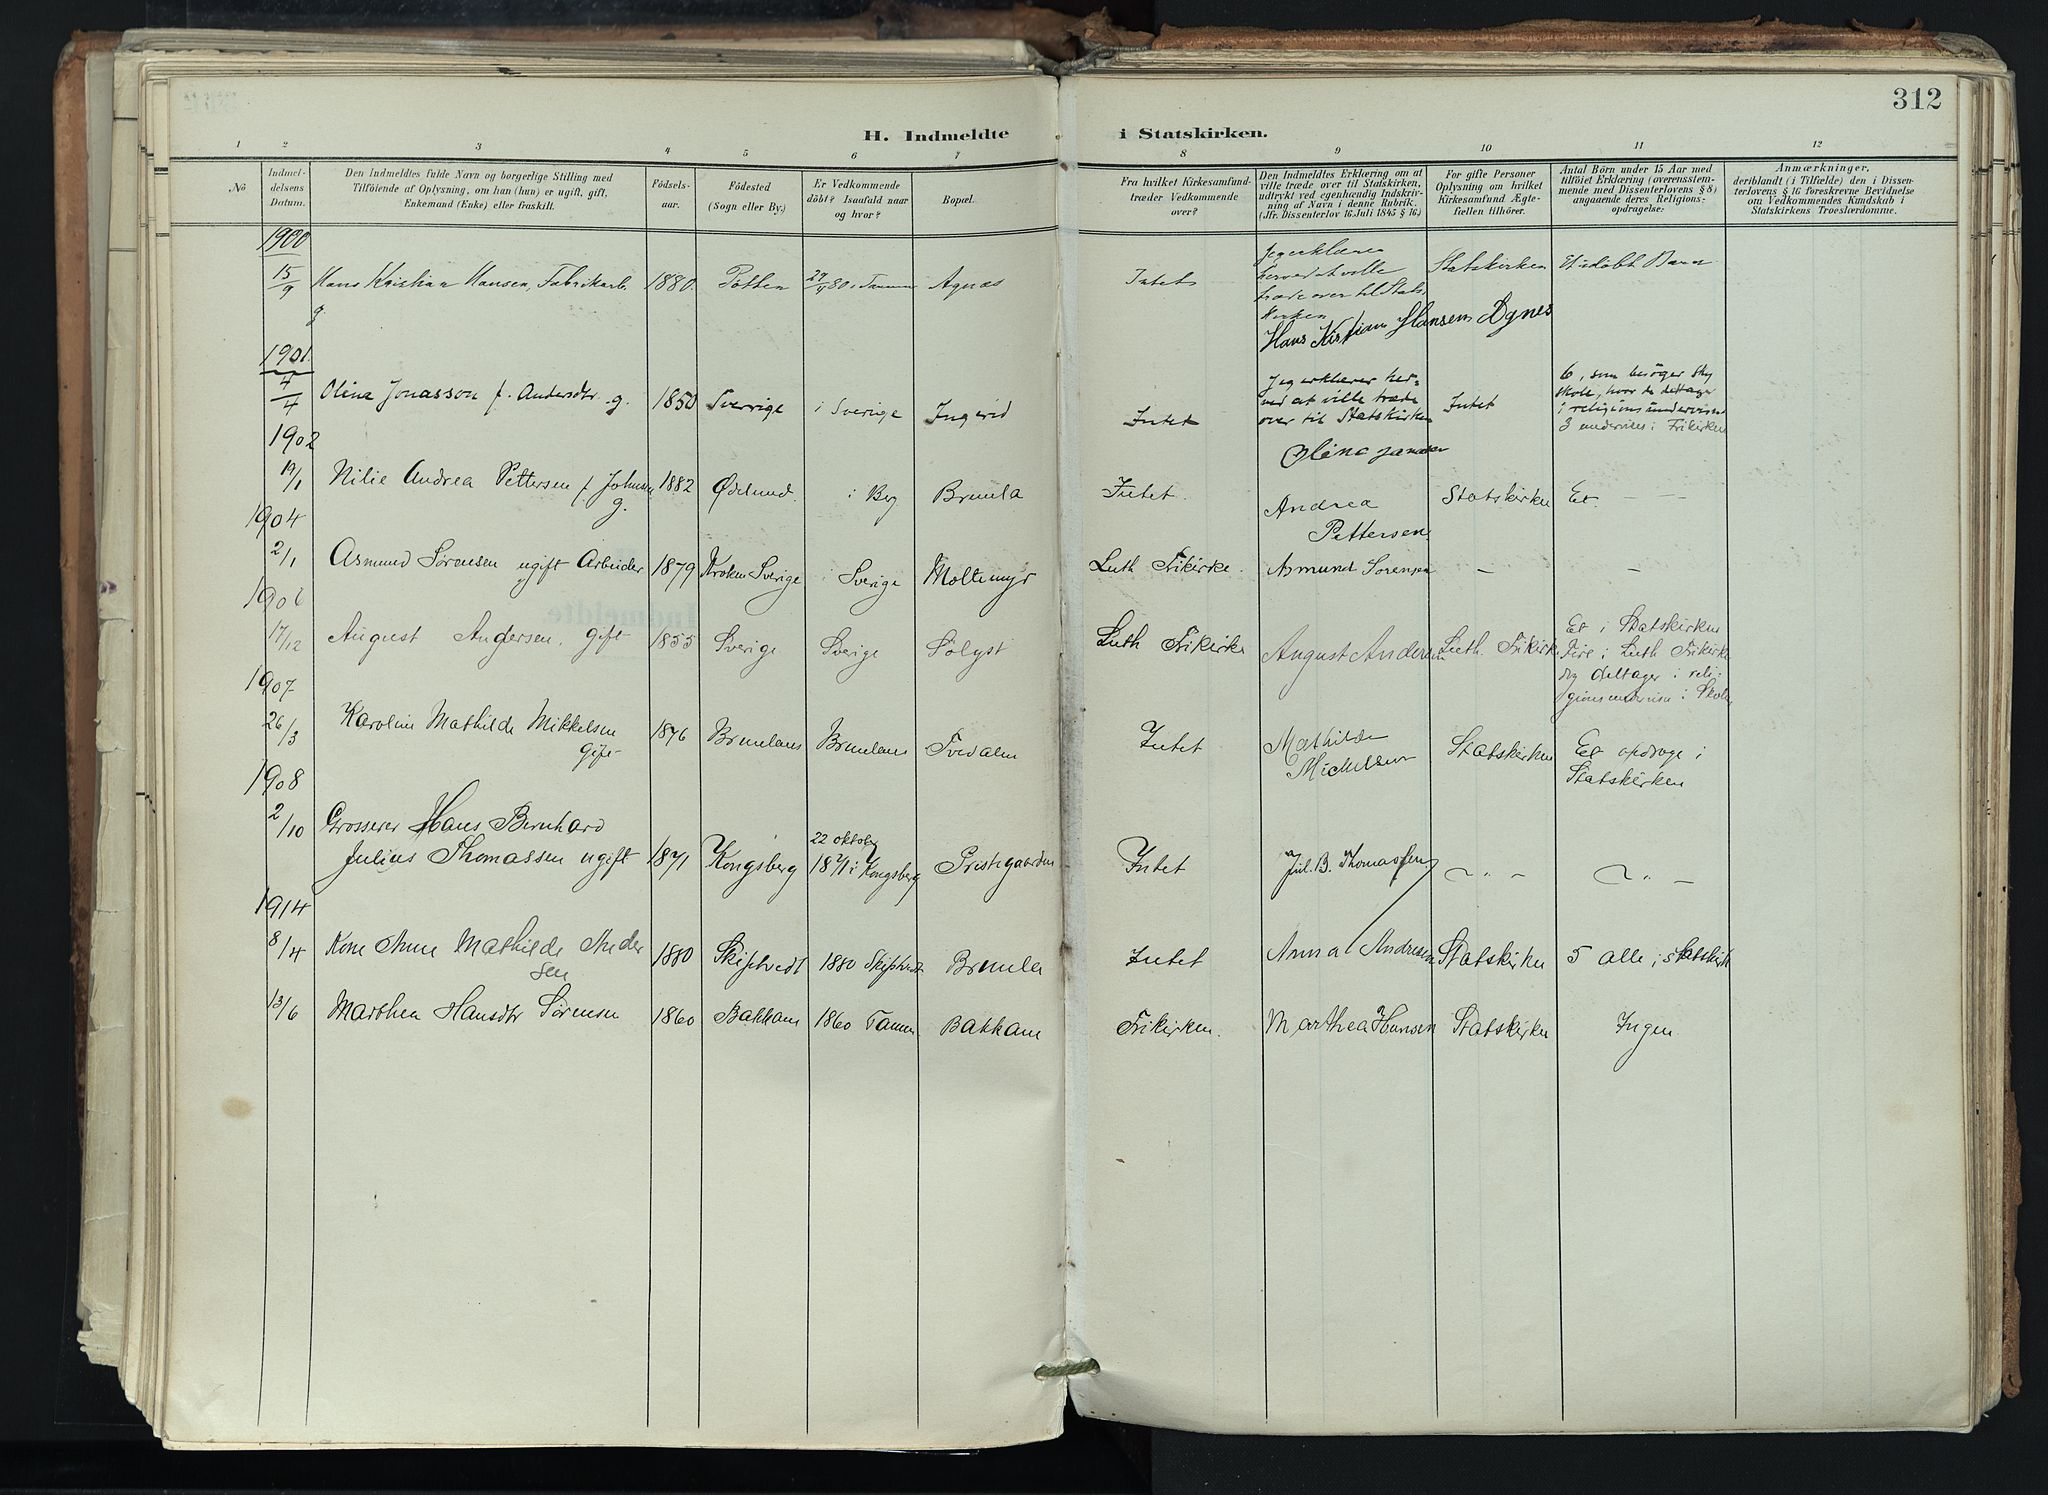 312
H. Indmeldte i Statskirken.
1 2 3 4 5 6 7 8 9 10 11 12
No
Indmel-
delsens
Datum.
Den Indmeldtes fulde Navn og borgerlige Stilling med
Tilföiende af Oplysning, om han (hun) er ugift, gift,
Enkemand (Enke) eller fraskilt.
Födsels-
aar.
Födested
(Sogn eller By.)
Er Vedkommende
döbt? Isaafald naar
og hvor?
Bopæl.
Fra hvilket Kirkesamfund-
træder Vedkommende
over?
Den Indmeldtes Erklæring om at
ville træde over til Statskirken,
udtrykt ved egenhændig Indskriv-
ning af Navn i denne Rubrik.
(Jfr. Dissenterlov 16 Juli 1845 § 16.)
For gifte Personer
Oplysning om hvilket
Kirkesamfund Ægte-
fællen tilhörer.
Antal Börn under 15 Aar med
tilföiet Erklæring (overensstem-
mende med Dissenterlovens § 8)
angaaende deres Religions-
opdragelse.
Anmærkninger,
deriblandt (i Tilfælde) den i Dissen-
terlovens § 16 foreskrevne Bevidnelse
om Vedkommendes Kundskab i
Statskirkens Troeslærdomme.
1900
15/9 Hans Kristian Hansen, Fabrikarb. 1880. Agnæs Intet
g
Jeg erklærer
herved at ville
træde over til Stats
kirken
Hans Kristian Hansen Agnes
Statskirken Et udöbt Barn
1901
4/4 Olina Jonasson f. Andersdtr. g. 1850 Sverrige i Sverige Ingerid Intet
Jeg erklærer her-
ved at ville træde
over til Statskirken
Olina
Intet
6, som besöger
skole, hvor de deltager
i religionsundervisn
3 undervises i Frikirken
1902
19/1 Nilie Andrea Pettersen f. Johnsen 1882 i Berg Brunla Intet.
g.
Andrea
Pettersen
Statskirken Et — —
1904
2/1 Asmund Sörensen ugift Arbeider 1879 Kroken Sverige i Sverige Moltemyr Luth Frikirke. Asmund Sorensen — —
1906
17/12 August Andersen, gift 1855 Sverige Sverige Solyst Luth Frikirke August Andersen Luth. Frikirke
Et i Statskirken
Fire i Luth Frikirke
og deltager i reli-
gionsundervisn i Skolen
1907
26/3 Karoline Mathilde Mikkelsen 1876 Brunlanes Brunlanes Tvedalen Intet
gift
Mathilde
Mickelsen
Statskirken
Et opdrage i
Statskirken
1908
2/10 Grosserer Hans Bernhard
Julius Thomassen ugift 1871 Kongsberg
22 oktober
1871 i Kongsberg Prestegaarden Intet Jul. B. Thomassen — " — — " —
1914
8/4 Kone Anne Mathilde Ander
sen
1880 Skiptvedt 1880 Skiptvedt Brunla Intet Anna Andresen Statskirken 5 alle i statskirk
13/6 Marthea Hansdtr Sörensen 1860 Bakkane 1860 Tanum Bakkane Frikirken. Marthea Hansen Statskirken Ingen